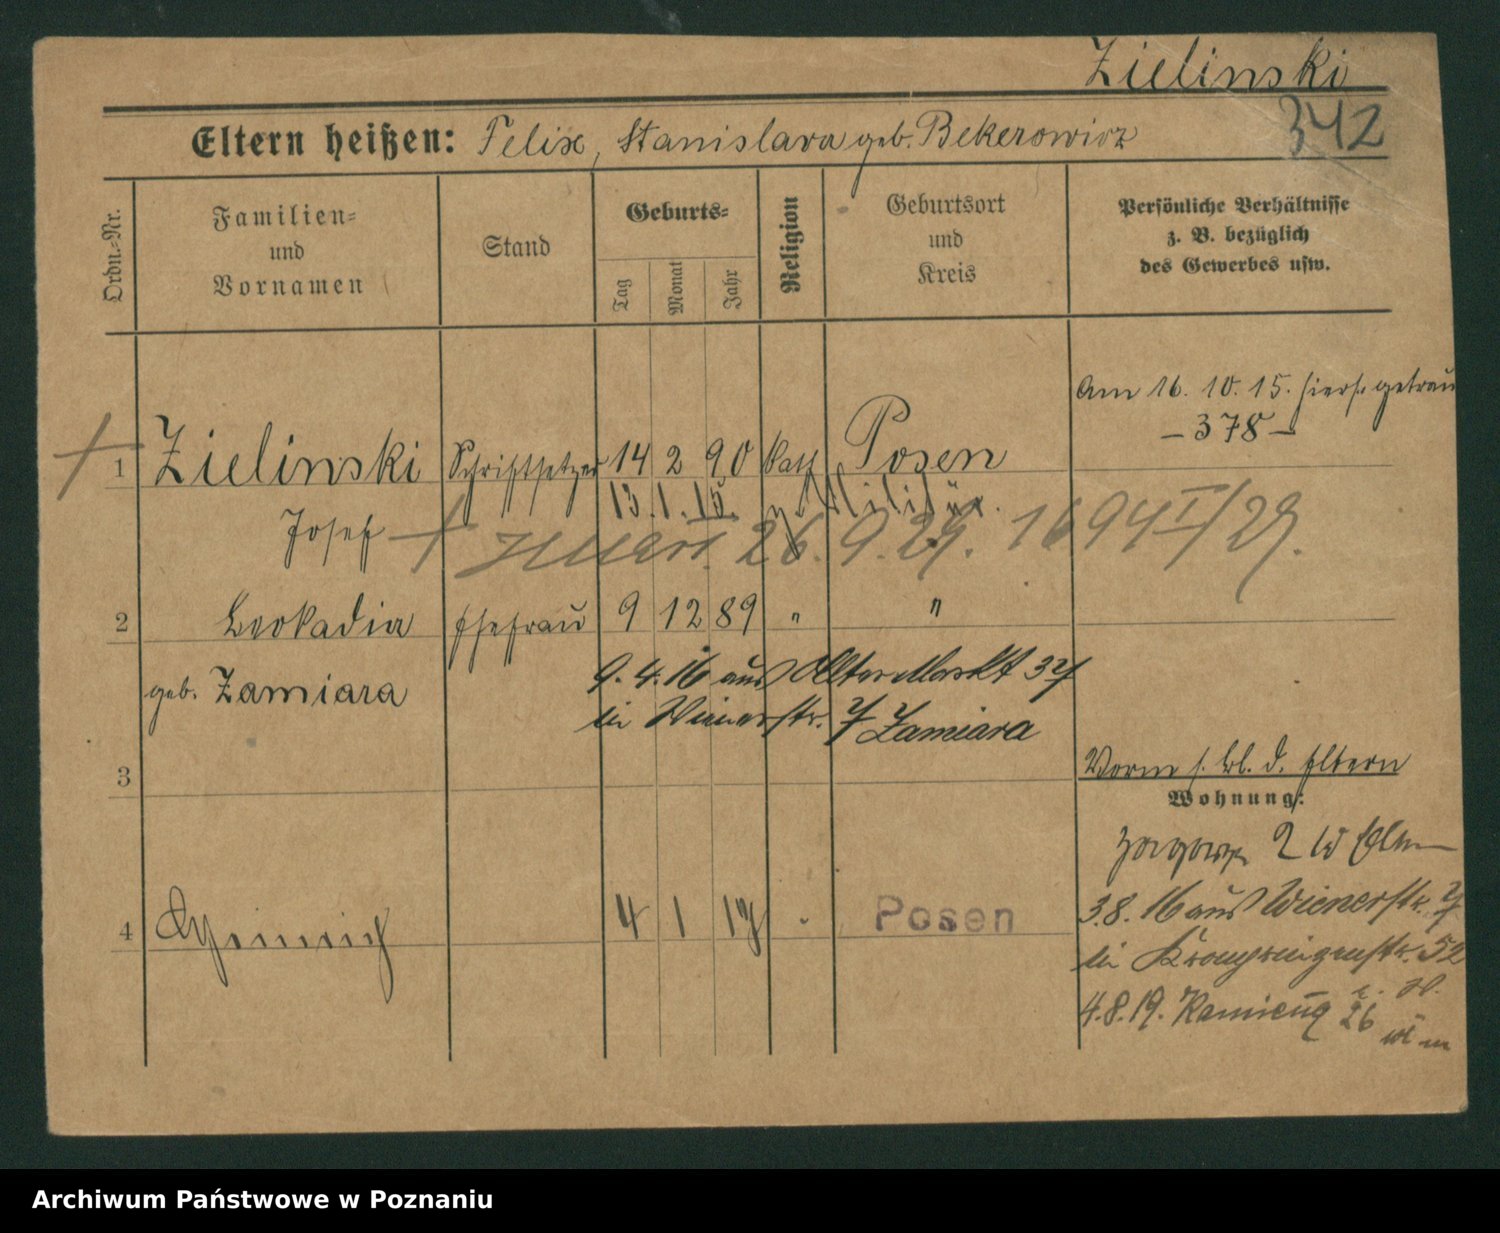 Zielinski
342
Eltern heißen: Felix, Stanislava geb. Bekerowicz
Ordn.-Nr.
Familien- und Vornamen
Stand
Geburts-
Tag
Monat
Jahr
Religion
Geburtsort und Kreis
Persönliche Verhältnisse z. B. bezüglich des Gewerbes usw.
Am 16. 10. 15. hiers. getraut
– 378 –
1 Zielinski Schriftsetzer 14 2 90 kath Posen
Josef 13. 1. 15. z. Militär.
26. 9. 29. 1694 I/29.
2 Leokadia Ehefrau 9 12 89 " "
geb. Zamiara
9. 4. 16 aus Alter Markt 37
in Wienerstr. 7 Zamiara
3
Vorm s. bl. d. Eltern
Wohnung:
2 b Eltern
3.8. 16 aus Wienerstr. 7
in Kronprinzenstr. 52
4.8.19.
26
4 Heinrich 4 1 17 Posen
Archiwum Państwowe w Poznaniu